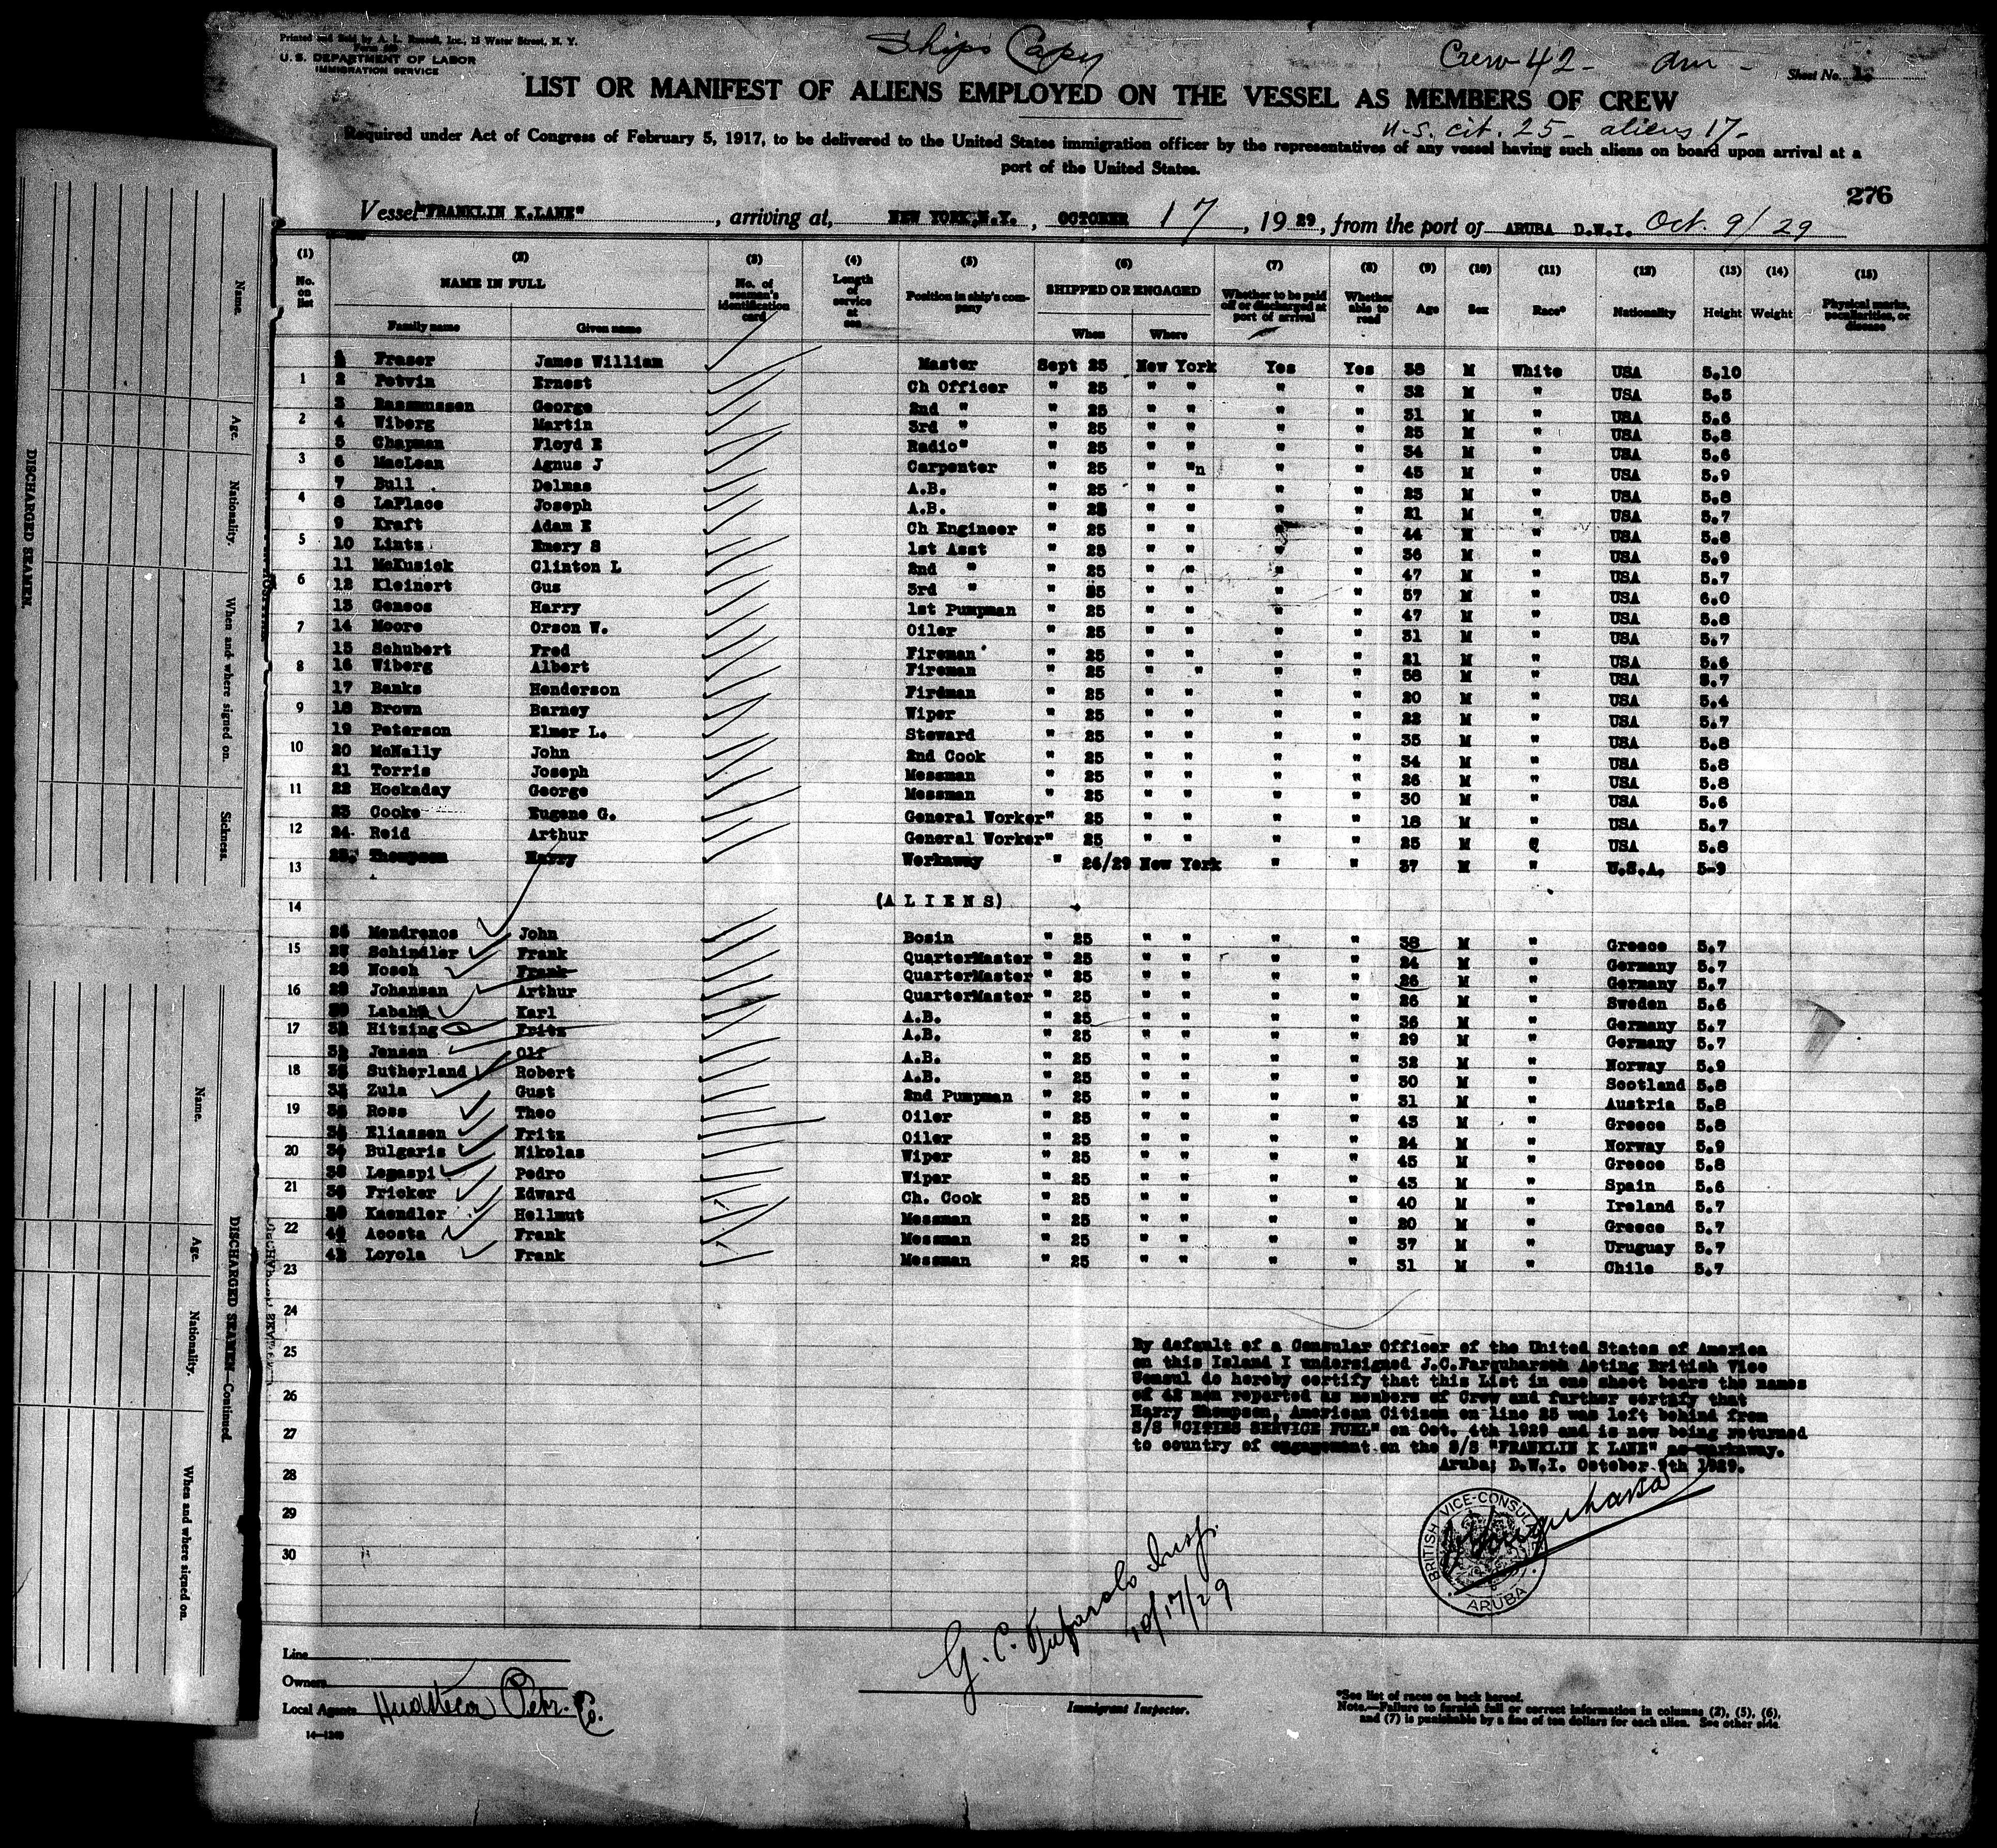 Ship's Copy
Crew 42 -
Printed and Sold by A. L. Russell, Inc., 15 Water Street, N. Y.
U. S. DEPARTMENT OF LABOR
IMMIGRATION SERVICE
Sheet No.
LIST OR MANIFEST OF ALIENS EMPLOYED ON THE VESSEL AS MEMBERS OF CREW
U.S. cit. 25 - aliens 17 -
Required under Act of Congress of February 5, 1917, to be delivered to the United States immigration officer by the representatives of any vessel having such aliens on board upon arrival at a
port of the United States.
276
Vessel "FRANKLIN K.LANE", arriving at, NEW YORK,N.Y., OCTOBER 17, 1929, from the port of ARUBA D.W.I. Oct. 9/29
(1) (2) (3) (4) (5) (6) (7) (8) (9) (10) (11) (12) (13) (14) (15)
No. on list NAME IN FULL Family name Given name No. of seaman's identification card Length of service at sea Position in ship's company SHIPPED OR ENGAGED When Where Whether to be paid off or discharged at port of arrival Whether able to read Age Sex Race* Nationality Height Weight Physical marks, peculiarities, or disease
1 Fraser James William Master Sept 25 New York Yes Yes 38 M White USA 5.10
2 Potvin Ernest Ch Officer " 25 " " " " 32 M " USA 5.5
3 Rassmussen George 2nd " " 25 " " " " 31 M " USA 5.6
4 Wiberg Martin 3rd " " 25 " " " " 25 M " USA 5.8
5 Chapman Floyd E Radio" " 25 " " " " 34 M " USA 5.6
6 MacLean Agnus J Carpenter " 25 " "n " " 45 M " USA 5.9
7 Bull Delmas A.B. " 25 " " " " 23 M " USA 5.8
8 LaPlace Joseph A.B. " 25 " " " " 21 M " USA 5.7
9 Kraft Adam E Ch Engineer " 25 " " " " 44 M " USA 5.8
10 Lintz Emery S 1st Asst " 25 " " " " 36 M " USA 5.9
11 McKusick Clinton L 2nd " " 25 " " " " 47 M " USA 5.7
12 Kleinert Gus 3rd " " 25 " " " " 57 M " USA 6.0
13 Genecs Harry 1st Pumpman " 25 " " " " 47 M " USA 5.8
14 Moore Orson W. Oiler " 25 " " " " 31 M " USA 5.7
15 Schubert Fred Fireman " 25 " " " " 21 M " USA 5.6
16 Wiberg Albert Fireman " 25 " " " " 58 M " USA 5.7
17 Banks Henderson Firdman " 25 " " " " 20 M " USA 5.4
18 Brown Barney Wiper " 25 " " " " 22 M " USA 5.7
19 Peterson Elmer L. Steward " 25 " " " " 35 M " USA 5.8
20 McNally John 2nd Cook " 25 " " " " 34 M " USA 5.8
21 Torris Joseph Messman " 25 " " " " 26 M " USA 5.8
22 Hockaday George Messman " 25 " " " " 30 M " USA 5.6
23 Cooke Eugene G. General Worker" 25 " " " " 18 M " USA 5.7
24 Reid Arthur General Worker" 25 " " " " 25 M USA 5.8
25. Thompson Harry Workaway " 26/29 New York " " 37 M " U.S.A. 5-9
(A L I E N S)
26 Mendrenos John Bosin " 25 " " " " 38 M " Greece 5.7
27 Schindler Frank QuarterMaster " 25 " " " " 24 M " Germany 5.7
28 Hosch Frank QuarterMaster " 25 " " " " 26 M " Germany 5.7
29 Johansan Arthur QuarterMaster " 25 " " " " 26 M " Sweden 5.6
Labahn Karl A.B. " 25 " " " " 36 M " Germany 5.7
Hitzing Fritz A.B. " 25 " " " " 29 M " Germany 5.7
Jensen Olf A.B. " 25 " " " " 32 M " Norway 5.9
Sutherland Robert A.B. " 25 " " " " 30 M " Scotland 5.8
Zula Gust 2nd Pumpman " 25 " " " " 31 M " Austria 5.8
Ross Theo Oiler " 25 " " " " 43 M " Greece 5.8
Eliassen Fritz Oiler " 25 " " " " 24 M " Norway 5.9
Bulgaris Nikolas Wiper " 25 " " " " 45 M " Greece 5.8
Legaspi Pedro Wiper " 25 " " " " 43 M " Spain 5.6
Fricker Edward Ch. Cook " 25 " " " " 40 M " Ireland 5.7
Kaendler Hellmut Messman " 25 " " " " 20 M " Greece 5.7
Acosta Frank Messman " 25 " " " " 37 M " Uruguay 5.7
42 Loyola Frank Messman " 25 " " " " 31 M " Chile 5.7
1
2
3
4
5
6
7
8
9
10
11
12
13
14
15
16
17
18
19
20
21
22
23
24
25
26
27
28
29
30
By default of a Consular Officer of the United States of America
on this Island I undersigned J.C.Farquharson Acting British Vice
Consul do hereby certify that this List in one sheet bears the names
of 42 men reported as members of Crew and further certify that
Harry Thompson, American Citizen on line 25 was left behind from
S/S "CITIES SERVICE FUEL" on Oct. 4th 1929 and is now being returned
to country of engagement on the S/S "FRANKLIN K LANE" as workaway.
Aruba; D.W.I. October 9th 1929.
BRITISH VICE-CONSULATE
ARUBA
10/17/29
Immigrant Inspector.
Line
Owners
Local Agents Huasteca Petr. Co.
14—1240
*See list of races on back hereof.
Note.—Failure to furnish full or correct information in columns (2), (5), (6),
and (7) is punishable by a fine of ten dollars for each alien. See other side.
DISCHARGED SEAMEN.
Name.
Age.
Nationality.
When and where signed on.
Sickness.
DISCHARGED SEAMEN—Continued.
Name.
Age.
Nationality.
When and where signed on.